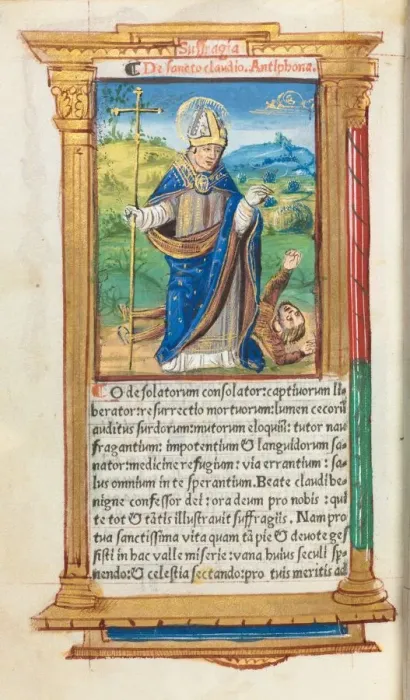 Suffragia
De sancto claudio. Antiphona.
O desolatorum consolator: captiuorum li-
berator: resurrectio mortuorum: lumen cecorũ
auditus surdorum: mutorum eloquiũ: tutor nau
fragantium: impotentium & languidorum sa-
nator: medicine refugium: via errantium: sa-
lus omnium in te sperantium. Beate claudi be-
nigne confessor dei: ora deum pro nobis: qui
te tot & tãtis illustrauit suffragiis. Nam pro
tua sanctissima vita quam tã pie & deuote ges
sisti in hac valle miserie: vana huius seculi sper
nendo: & celestia sectando: pro tuis meritis ad